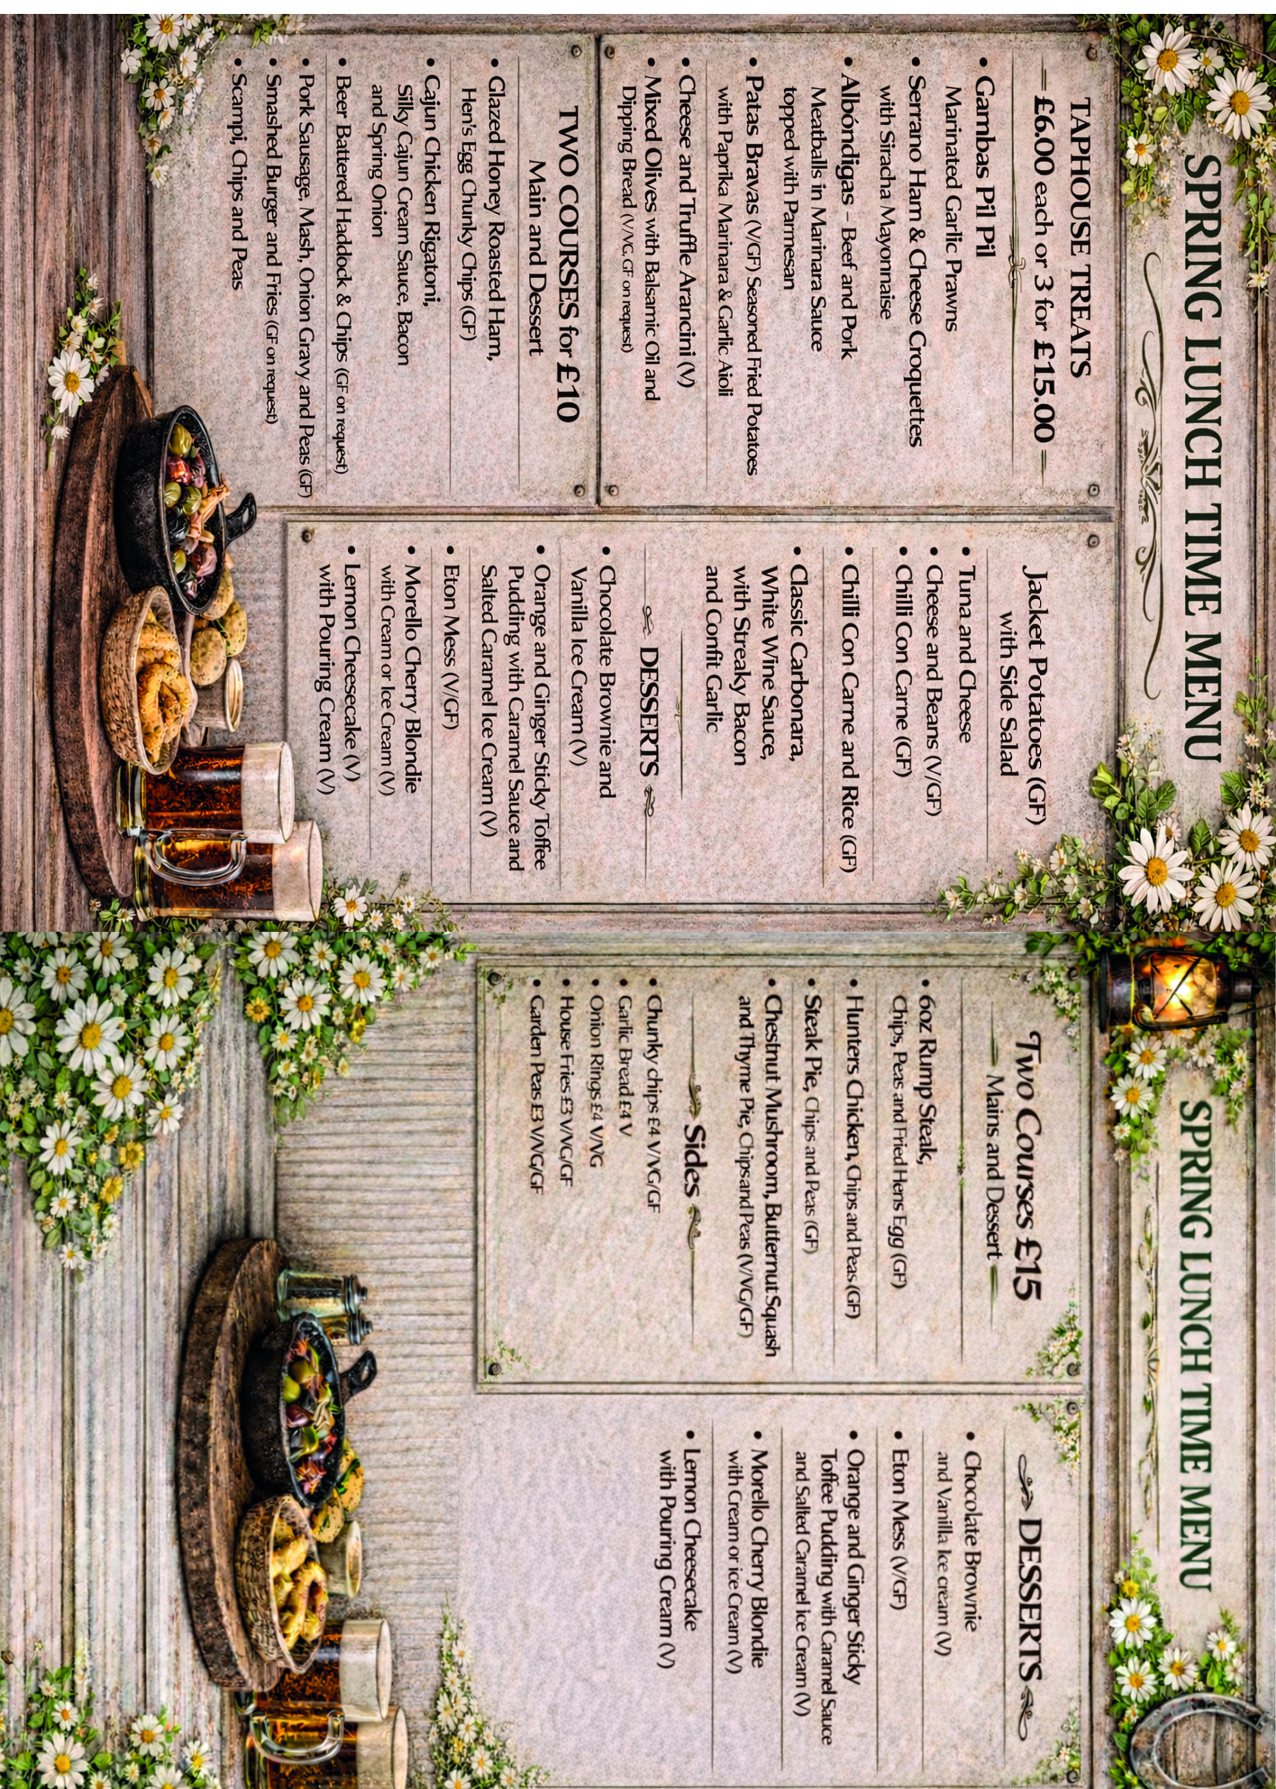 SPRING LUNCH TIME MENU
TAPHOUSE TREATS
£6.00 each or 3 for £15.00
• Gambas Pil Pil
Marinated Garlic Prawns
• Serrano Ham & Cheese Croquettes
with Siracha Mayonnaise
• Albóndigas – Beef and Pork
Meatballs in Marinara Sauce
topped with Parmesan
• Patas Bravas (V/GF) Seasoned Fried Potatoes
with Paprika Marinara & Garlic Aioli
• Cheese and Truffle Arancini (V)
• Mixed Olives with Balsamic Oil and
Dipping Bread (V/VG, GF on request)
TWO COURSES for £10
Main and Dessert
• Glazed Honey Roasted Ham,
Hen's Egg Chunky Chips (GF)
• Cajun Chicken Rigatoni,
Silky Cajun Cream Sauce, Bacon
and Spring Onion
• Beer Battered Haddock & Chips (GF on request)
• Pork Sausage, Mash, Onion Gravy and Peas (GF)
• Smashed Burger and Fries (GF on request)
• Scampi, Chips and Peas
Jacket Potatoes (GF)
with Side Salad
• Tuna and Cheese
• Cheese and Beans (V/GF)
• Chilli Con Carne (GF)
• Chilli Con Carne and Rice (GF)
• Classic Carbonara,
White Wine Sauce,
with Streaky Bacon
and Confit Garlic
DESSERTS
• Chocolate Brownie and
Vanilla Ice Cream (V)
• Orange and Ginger Sticky Toffee
Pudding with Caramel Sauce and
Salted Caramel Ice Cream (V)
• Eton Mess (V/GF)
• Morello Cherry Blondie
with Cream or Ice Cream (V)
• Lemon Cheesecake (V)
with Pouring Cream (V)
SPRING LUNCH TIME MENU
Two Courses £15
Mains and Dessert
• 6oz Rump Steak,
Chips, Peas and Fried Hens Egg (GF)
• Hunters Chicken, Chips and Peas (GF)
• Steak Pie, Chips and Peas (GF)
• Chestnut Mushroom, Butternut Squash
and Thyme Pie, Chips and Peas (V/VG/GF)
Sides
• Chunky chips £4 V/VG/GF
• Garlic Bread £4 V
• Onion Rings £4 V/VG
• House Fries £3 V/VG/GF
• Garden Peas £3 V/VG/GF
DESSERTS
• Chocolate Brownie
and Vanilla Ice cream (V)
• Eton Mess (V/GF)
• Orange and Ginger Sticky
Toffee Pudding with Caramel Sauce
and Salted Caramel Ice Cream (V)
• Morello Cherry Blondie
with Cream or ice Cream (V)
• Lemon Cheesecake
with Pouring Cream (V)